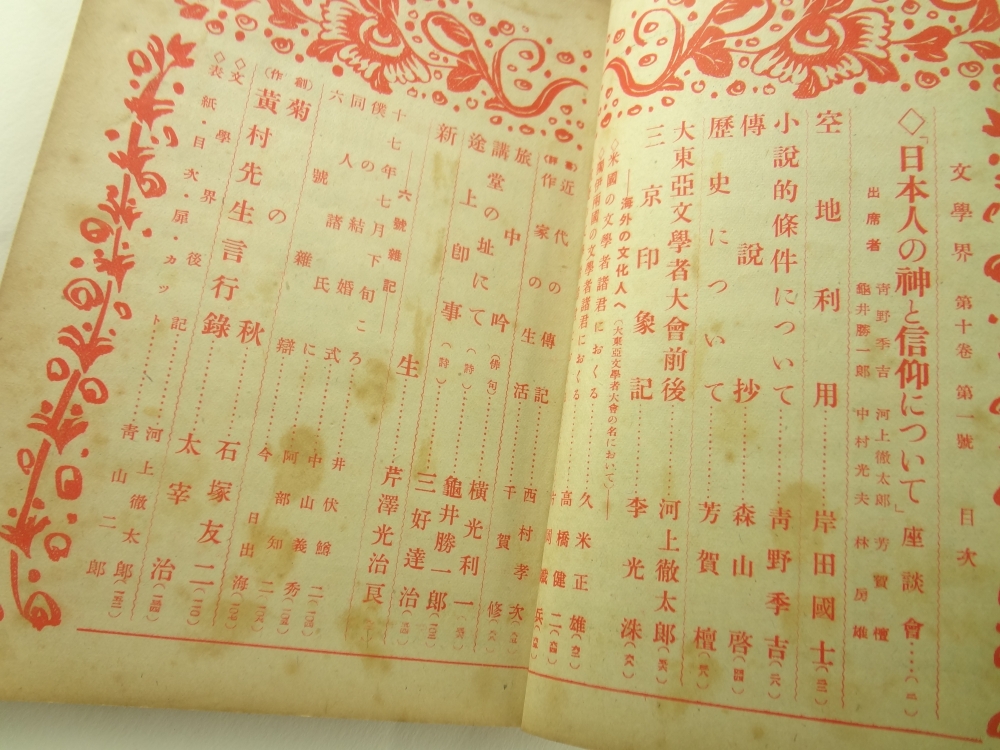 文學界 第十卷 第一號 目次
◇「日本人の神と信仰について」座談會……(二)
出席者
靑野季吉 河上徹太郎 芳賀檀
龜井勝一郎 中村光夫 林房雄
空地利用……岸田國士
小說的條件について……靑野季吉
傳說抄……森山啓
歷史について……芳賀檀
大東亞文學者大會前後……河上徹太郎
三京印象記……李光洙
――海外の文化人へ(大東亞文學者大會の名において)――
◇米國の文學者諸君におくる……久米正雄
國の文學者諸君におくる……高橋健二
近代の傳記……西村孝次
作家の生活……千賀修
旅中吟(俳句)……橫光利一
講堂の址にて(詩)……龜井勝一郎
途上卽事(詩)……三好達治
新生……芹澤光治良
――六號雜記――
十七年七月下旬ころ……井伏鱒二
僕の結婚式……中山義秀
同人諸氏に……阿部知二
六號雜辯……今日出海
(創作)
菊の秋……石塚友二(一一〇)
黃村先生言行錄……太宰治
◇文學界後記……河上徹太郎
◇表紙・目次・扉・カット……靑山二郎